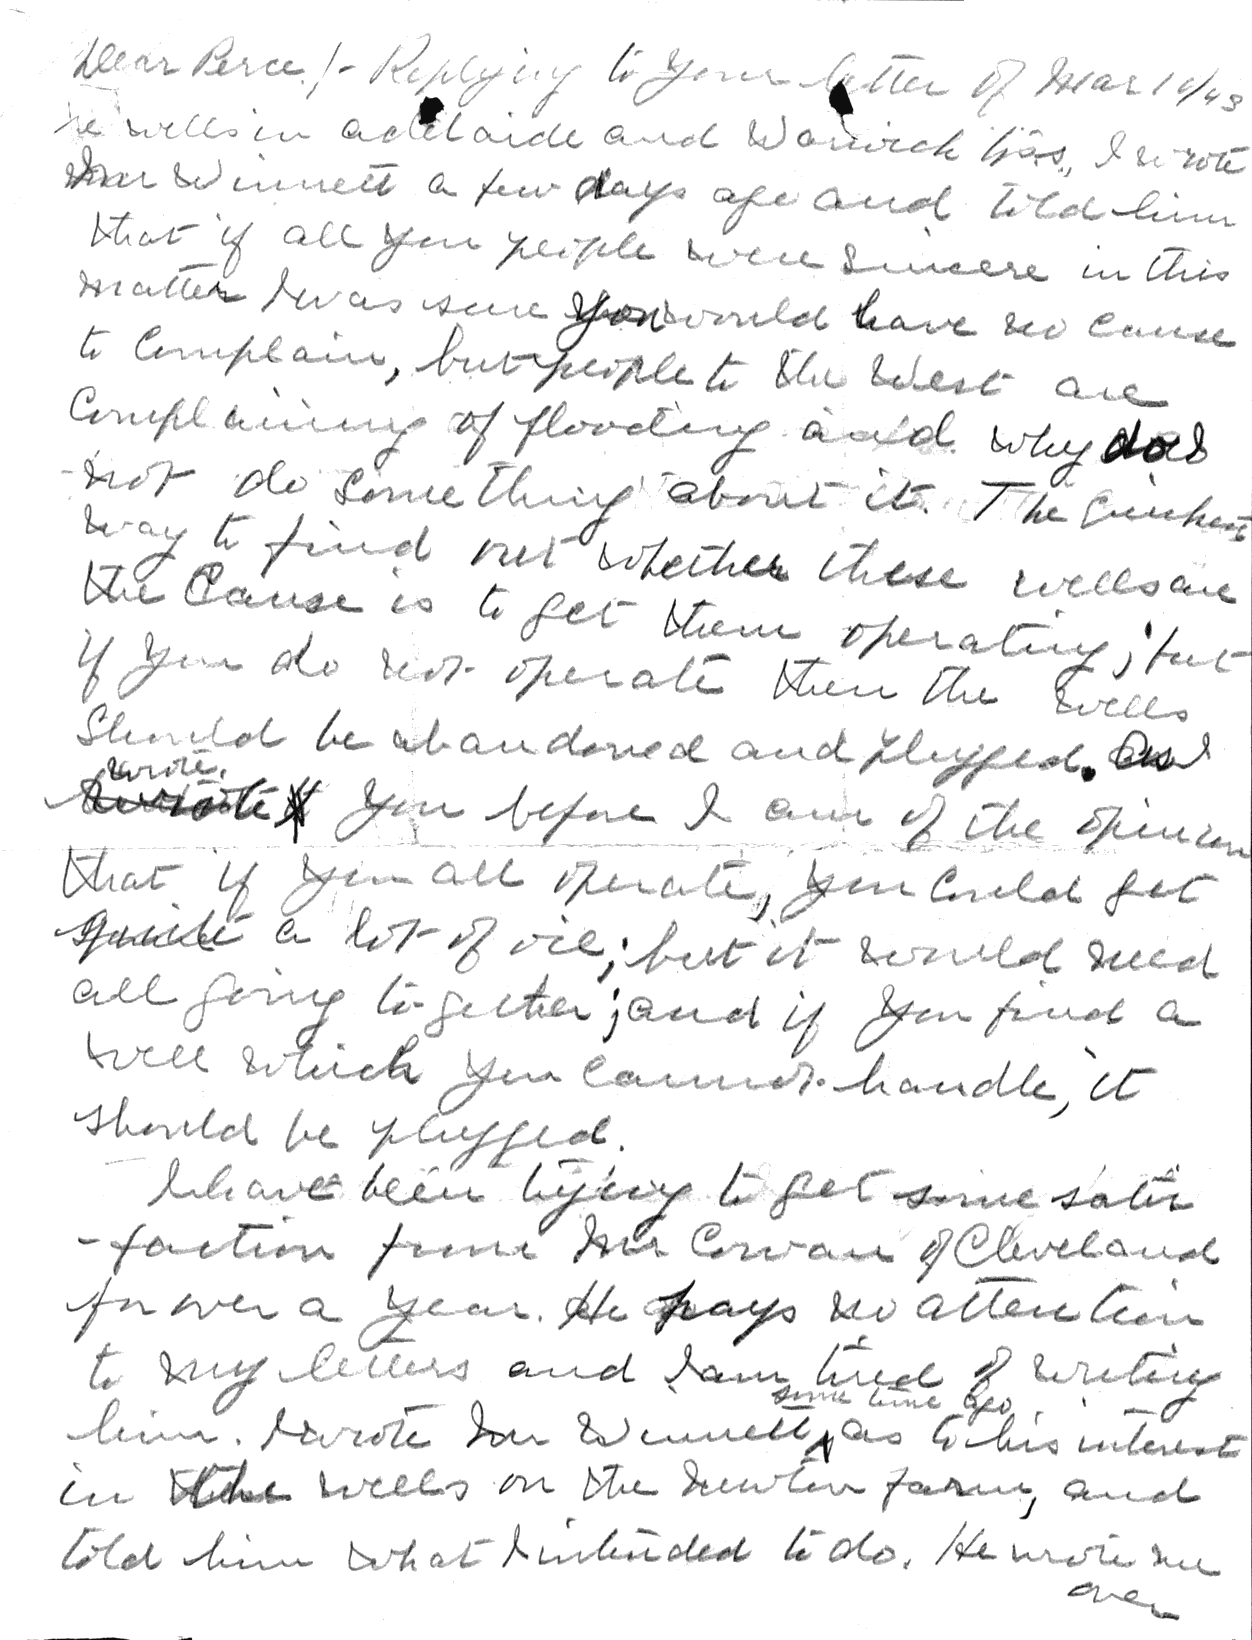 Dear Perce!- Replying to your letter of Mar 10/43
re wells in Adelaide and Warwick tps., I wrote
Mr Winnett a few days ago and told him
that if all you people were sincere in this
matter I was sure you would have no cause
to complain, but people to the West are
complaining of flooding and why do I
not do something about it. The quickest
way to find out whether these wells are
the cause is to get them operating; but
if you do not operate then the wells
should be abandoned and plugged. As I
wrote
you before I am of the opinion
that if you all operate, you could get
quite a lot of oil; but it would need
all going to-gether; and if you find a
well which you cannot handle, it
should be plugged.
I have been trying to get some satis
-faction from Mr Cowan of Cleveland
for over a year. He pays no attention
to my letters and I am tired of writing
some time ago
him. I wrote Mr Winnett as to his interest
in the wells on the Newton farm, and
told him what I intended to do. He wrote me
over